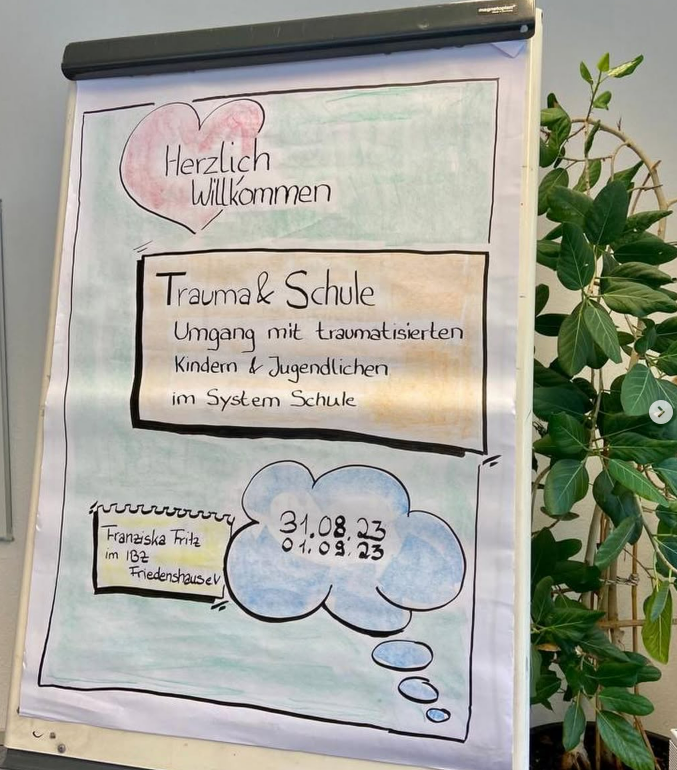 magnetoplan
Herzlich
Willkommen
Trauma & Schule
Umgang mit traumatisierten
Kindern & Jugendlichen
im System Schule
31.08.23
01.09.23
Franziska Fritz
im IBZ
Friedenshaus e.V